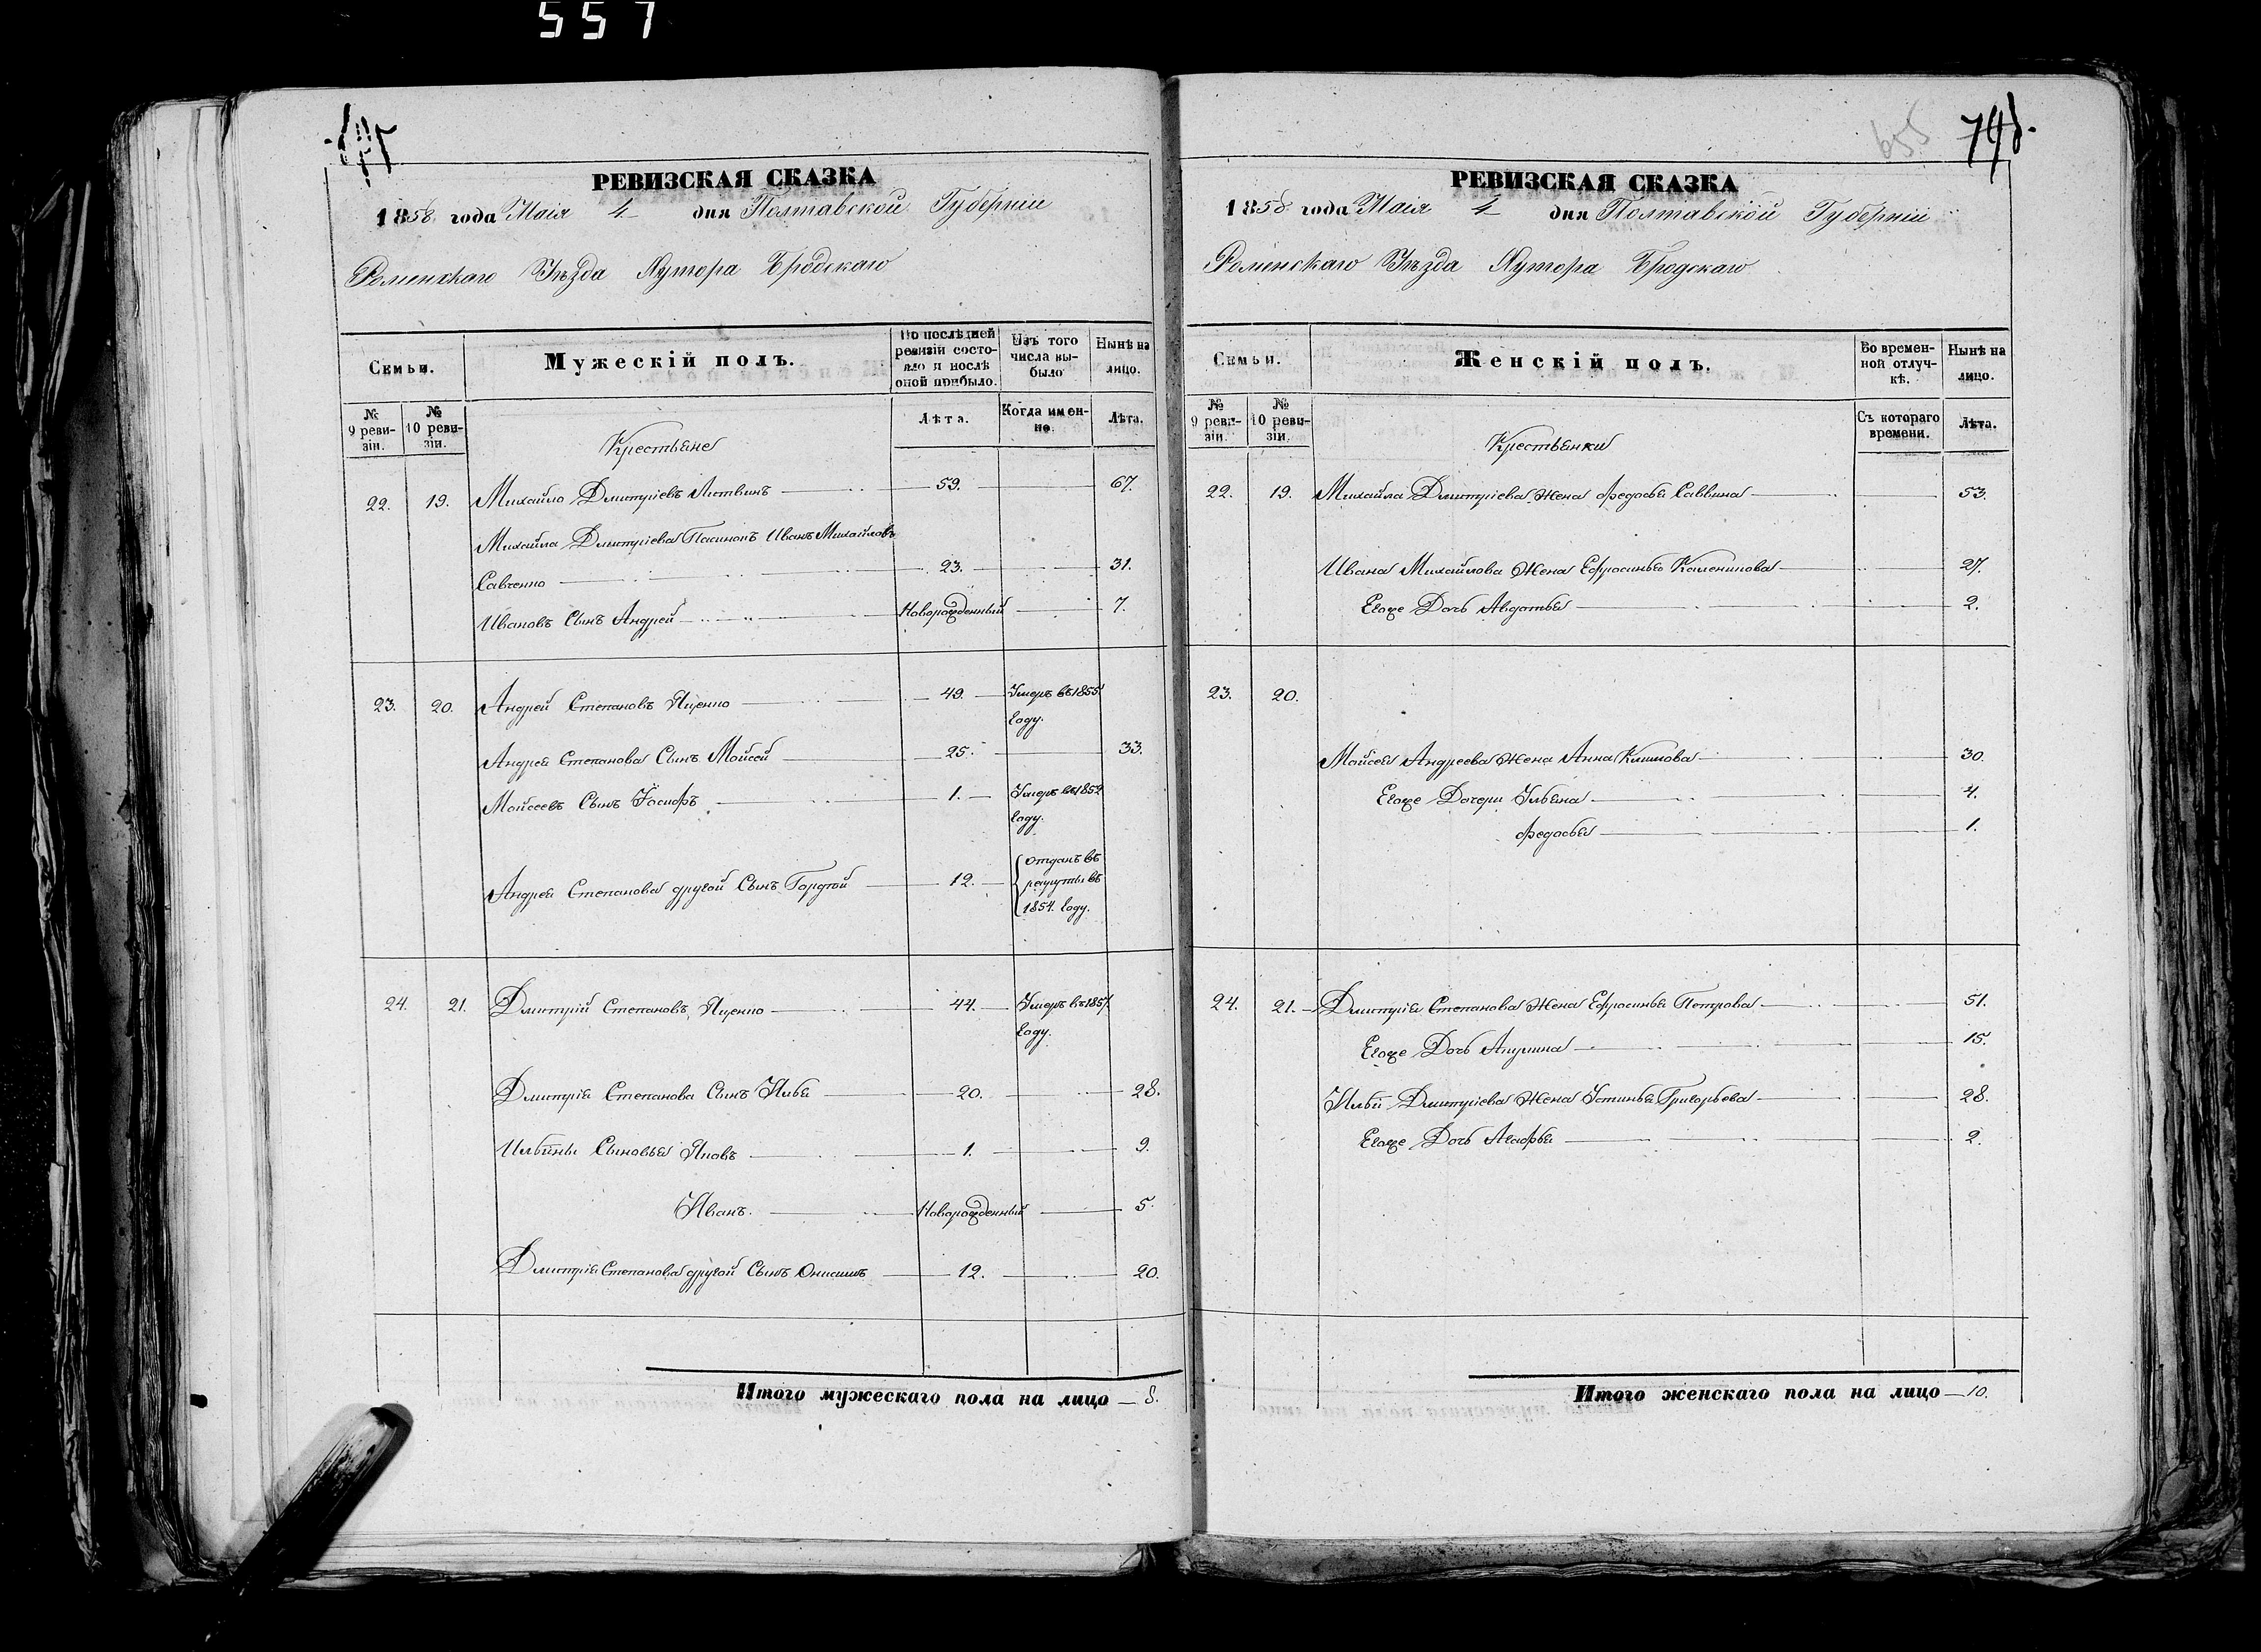 557
747
РЕВИЗСКАЯ СКАЗКА
1858 года Маія 4 дня Полтавской Губерніи
Роменскаго Уѣзда Хутора Бродскаго
Семьи.
Мужескій полъ.
По послѣдней ревизіи состояло и послѣ оной прибыло.
Изъ того числа выбыло
Нынѣ на лицо.
№ 9 ревизіи.
№ 10 ревизіи.
Лѣта.
Когда именно.
Лѣта.
Крестьяне
22. 19. Михайло Дмитріевъ Литвинъ 59. 67.
Михайла Дмитріева Пасинокъ Иванъ Михайловъ
Савченко 23. 31.
Ивановъ Сынъ Андрей Новорожденный 7.
23. 20. Андрей Степановъ Яценко 49. Умеръ въ 1855.
году.
Андрея Степанова Сынъ Мойсей 25. 33.
Мойсеевъ Сынъ Іосифъ 1. Умеръ въ 1852
году.
Андрея Степанова другой Сынъ Гордѣй 12. отданъ въ
рекруты въ
1854. году.
24. 21. Дмитрій Степановъ Яценко 44. Умеръ въ 1857.
году.
Дмитрія Степанова Сынъ Илья 20. 28.
Ильины Сыновья Яковъ 1. 9.
Иванъ. Новорожденный 5.
Дмитрія Степанова другой Сынъ Онисимъ 12. 20.
Итого мужескаго пола на лицо 8.
655 748
РЕВИЗСКАЯ СКАЗКА
1858 года Маія 4 дня Полтавской Губерніи
Роменскаго Уѣзда Хутора Бродскаго
Семьи.
Женскій полъ.
Во временной отлучкѣ.
Нынѣ на лицо.
№ 9 ревизіи.
№ 10 ревизіи.
Съ котораго времени.
Лѣта.
Крестьянки
22. 19. Михайла Дмитріева Жена Федосья Саввина 53.
Ивана Михайлова Жена Ефросинья Каленикова 27.
Егоже Дочь Авдотья 2.
23. 20.
Мойсея Андреева Жена Анна Климова 30.
Егоже Дочери Ульяна 4.
Федосья 1.
24. 21. Дмитрія Степанова Жена Ефросинья Петрова 51.
Егоже Дочь Акулина 15.
Ильи Дмитріева Жена Устинья Григорьева 28.
Егоже Дочь Агафья 2.
Итого женскаго пола на лицо 10.